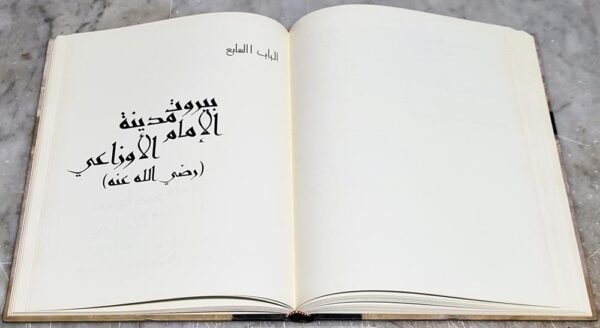 الباب السابع
بيروت مدينة
الإمام الأوزاعي
(رضي الله عنه)